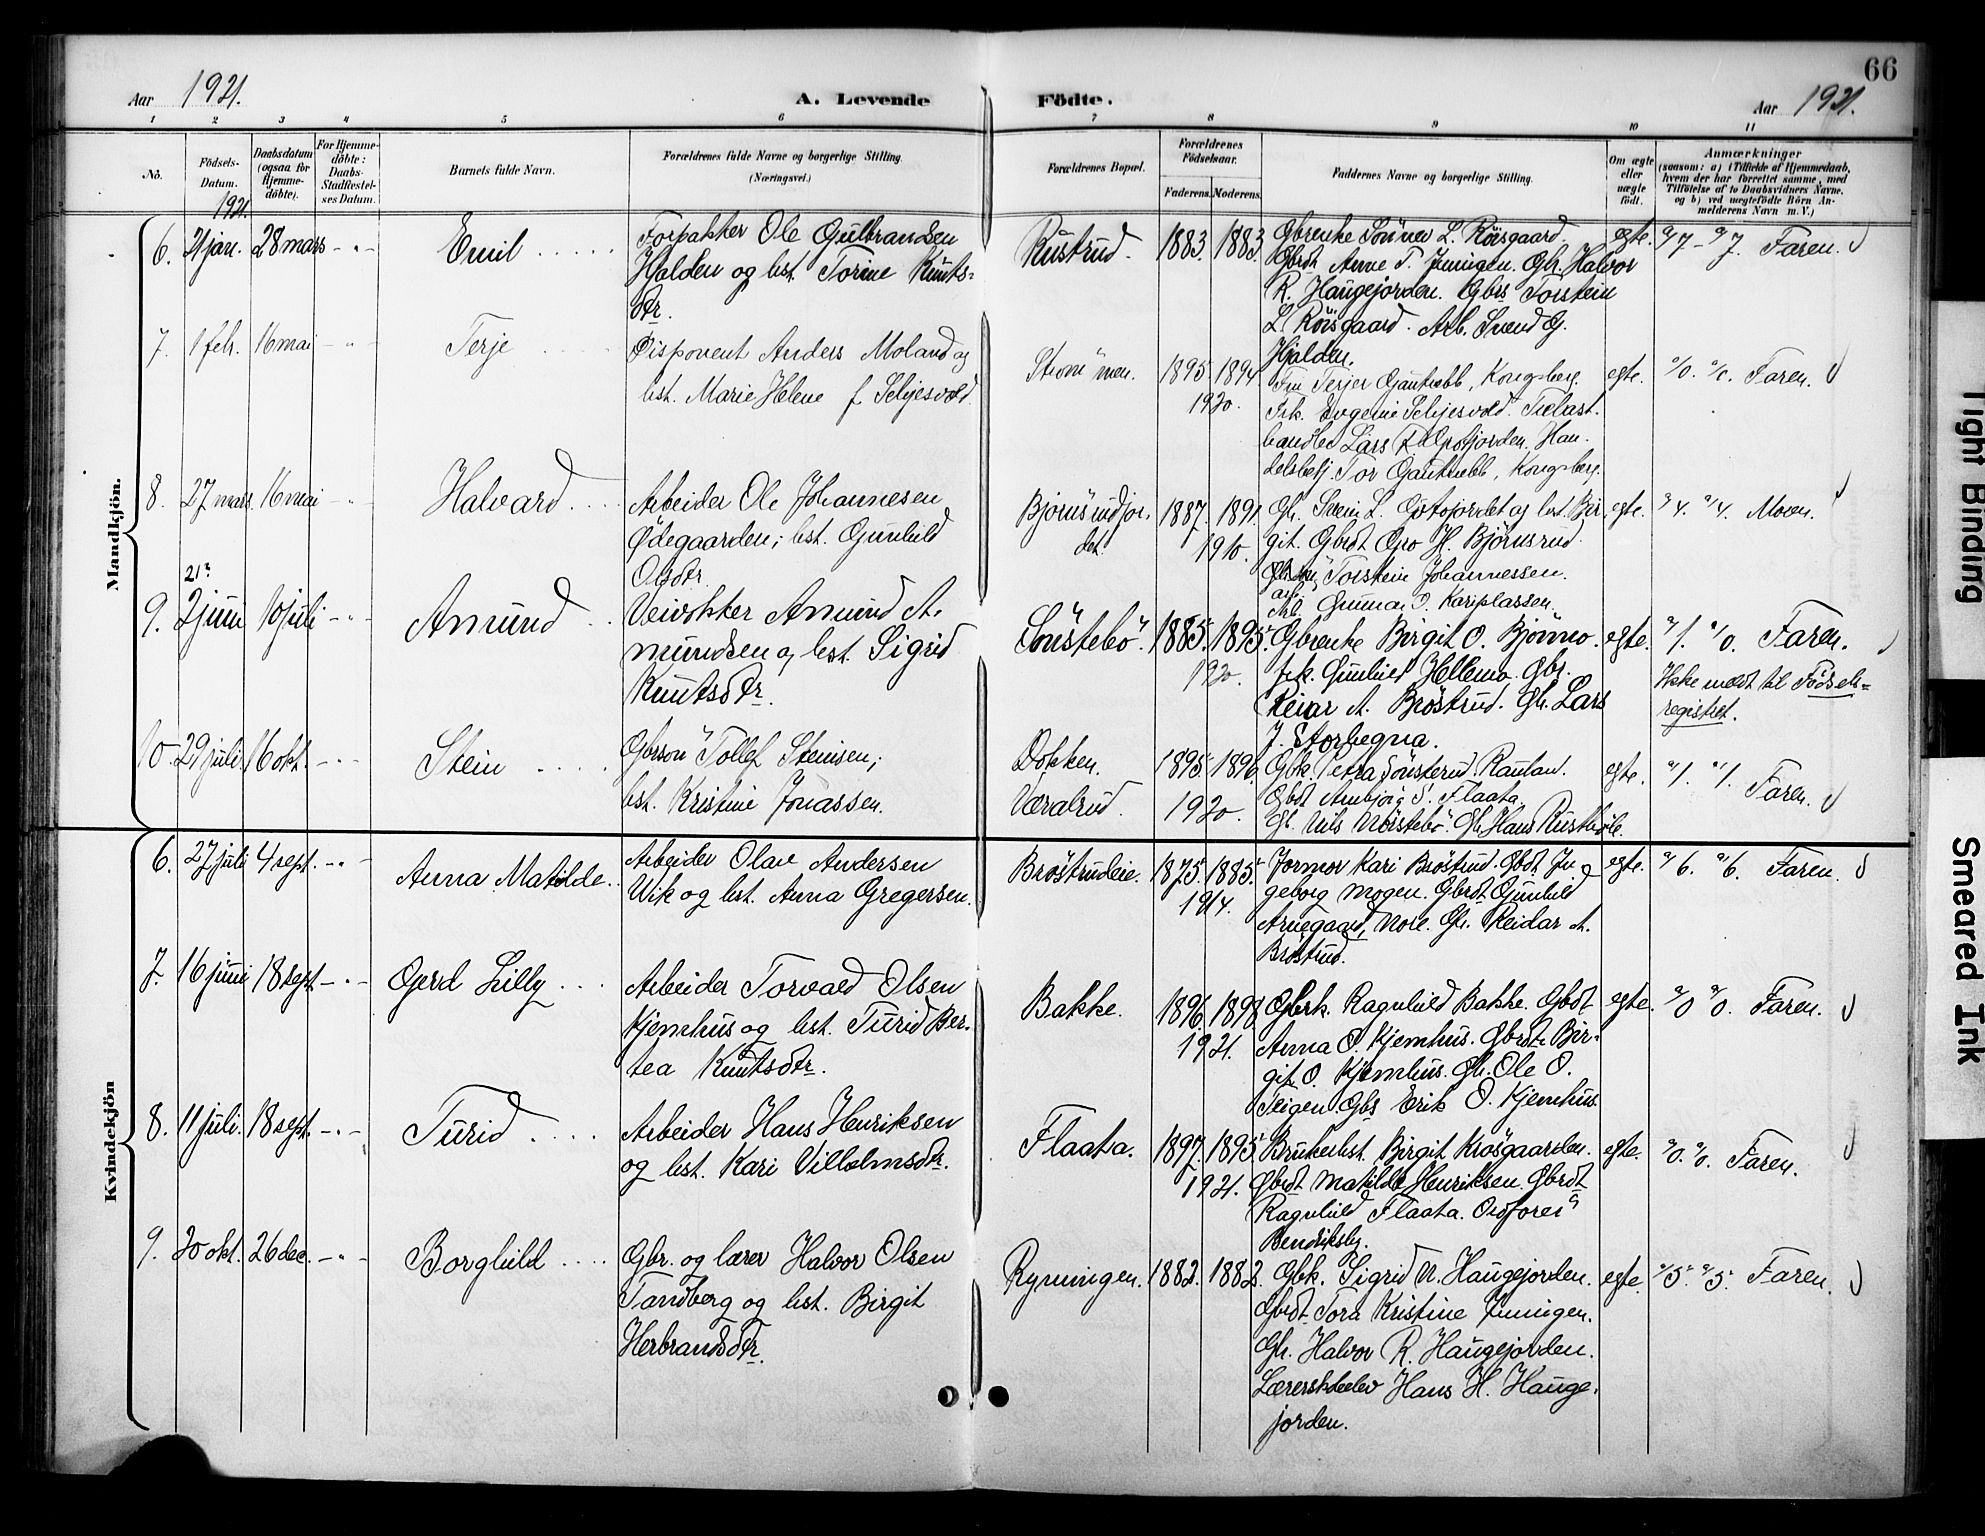 66
Aar 1921. A. Levende Födte. Aar 1921.
1 2 3 4 5 6 7 8 9 10 11
No.
Födsels-
Datum.
1921.
Daabsdatum
(ogsaa for
Hjemme-
döbte).
For Hjemme-
döbte:
Daabs-
Stadfæstel-
ses Datum.
Barnets fulde Navn.
Forældrenes fulde Navne og borgerlige Stilling.
(Næringsvei.)
Forældrenes Bopæl.
Forældrenes
Födselsaar.
Faderens. Moderens.
Faddernes Navne og borgerlige Stilling.
Om ægte
eller
uægte
födt.
Anmærkninger
(saasom: a) i Tilfælde af Hjemmedaab,
hvem der har forrettet samme, med
Tilföielse af to Daabsvidners Navne,
og b) ved uægtefödte Börn An-
melderens Navn m. V.)
Mandkjön.
6. 21 jan. 28 mars - " - Emil
Forpakter Ole Gulbrandsen
Halden og hst. Torine Knuts-
dtr.
Rustrud. 1883. 1883.
Gbrenke Sönnev L. Röisgaard.
Gbdt. Anne T. Juningen. Gh. Halvor
R. Haugejorden. Gbrs Torstein
L. Röisgaard. Arb. Svend G.
Hjalden.
egte. Faren.
7. 1 febr. 16 mai - " - Terje
Disponent Anders Moland og
hst. Marie Helene f. Seljesvold.
1895. 1894
1920.
Fru Terjer Gautvebb, Kongsberg.
Frk. Evgenie Seljesvold. Trelast-
handler Lars Opofjorden. Han-
delsbetj. Tor Gautvebb, Kongsberg.
egte. Faren.
8. 27 mars. 16 mai - " - Halvard
Arbeider Ole Johannesen
Ødegaarden; hst. Gunhild
Olsdtr.
Björnsrudjor-
det.
1887. 1891.
1910.
Gh. Svein L. og hst. Bir-
git. Gbrdt. Gro H. Björnsrud.
Torstein Johannessen.
Arb. Gunnar O. Kariplassen.
egte. Moren.
9. 21?
2 juni 10 juli - " - Amund
Veivokter Amund A-
mundsen og hst. Sigrid
Knutsdtr.
Sönstebö. 1885. 1895.
1920.
Gbrenke Birgit O. Björnmo.
frk. Gunhild Hellemo. Gbr.
Reiar A. Bröstrud. Gh. Lars
J. Storhegna.
egte. Faren.
Ikke meldt til Födsels-
registret.
10. 29 juli. 16 okt. - " - Stein
Gbrsön Tollef Steinsen;
hst. Kristine Jonassen.
Dokken.
Væralrud.
1895. 1896.
1920.
Gbk. Petra Sönsterud. Rauland.
Gbdt Ambjörg S. Flaata.
Gh. Nils Nöistebö. Gh. Hans Rusthöle.
egte. Faren.
Kvindekjön
6. 27 juli 4 sept. - " - Anna Matilde.
Arbeider Olav Andersen
Wik og hst. Anna Gregersen.
Bröstrudeie. 1875. 1885.
1914.
Jormor Kari Bröstrud. Gbdt. In-
geborg Mogen. Gbrdt. Gunhild
Aruegaard, Nore. Gh. Reidar A.
Bröstrud.
egte. Faren.
7. 16 juni 18 sept. - " - Gerd Lilly
Arbeider Torvald Olsen
Kjemhus og hst. Turid Ber-
tea Knutsdtr.
Bakke. 1896. 1898.
1921.
Gbrk. Ragnhild Bakke. Gbdt
Anna O. Kjemhus. Gbrdt. Bir-
git O. Kjemhus. Gh. Ole O.
Teigen Gbs Erik O. Kjemhus.
egte. Faren.
8. 11 juli. 18 sept. - " - Turid
Arbeider Hans Henriksen
og hst. Kari Villelmsdtr.
Flaata. 1897. 1895.
1921.
Brukerhst. Birgit Krösgaarden.
Gbrdt. Matilde Henriksen. Gbrdt.
Ragnhild Flaata. Ordförer
Bendriksby.
egte. Faren.
9. 20 okt. 26 dec. - " - Borghild
Gbr. og lærer Halvor Olsen
Tandberg og hst. Birgit
Herbrandsdtr.
Ryningen. 1882. 1882.
Gbk. Sigrid N. Haugejorden.
Gbrdt. Tora Kristine Juningen.
Gh. Halvor R. Haugejorden.
Lærerskelev Hans H. Hauge-
jorden.
egte. Faren.
Tight Binding
Smeared Ink